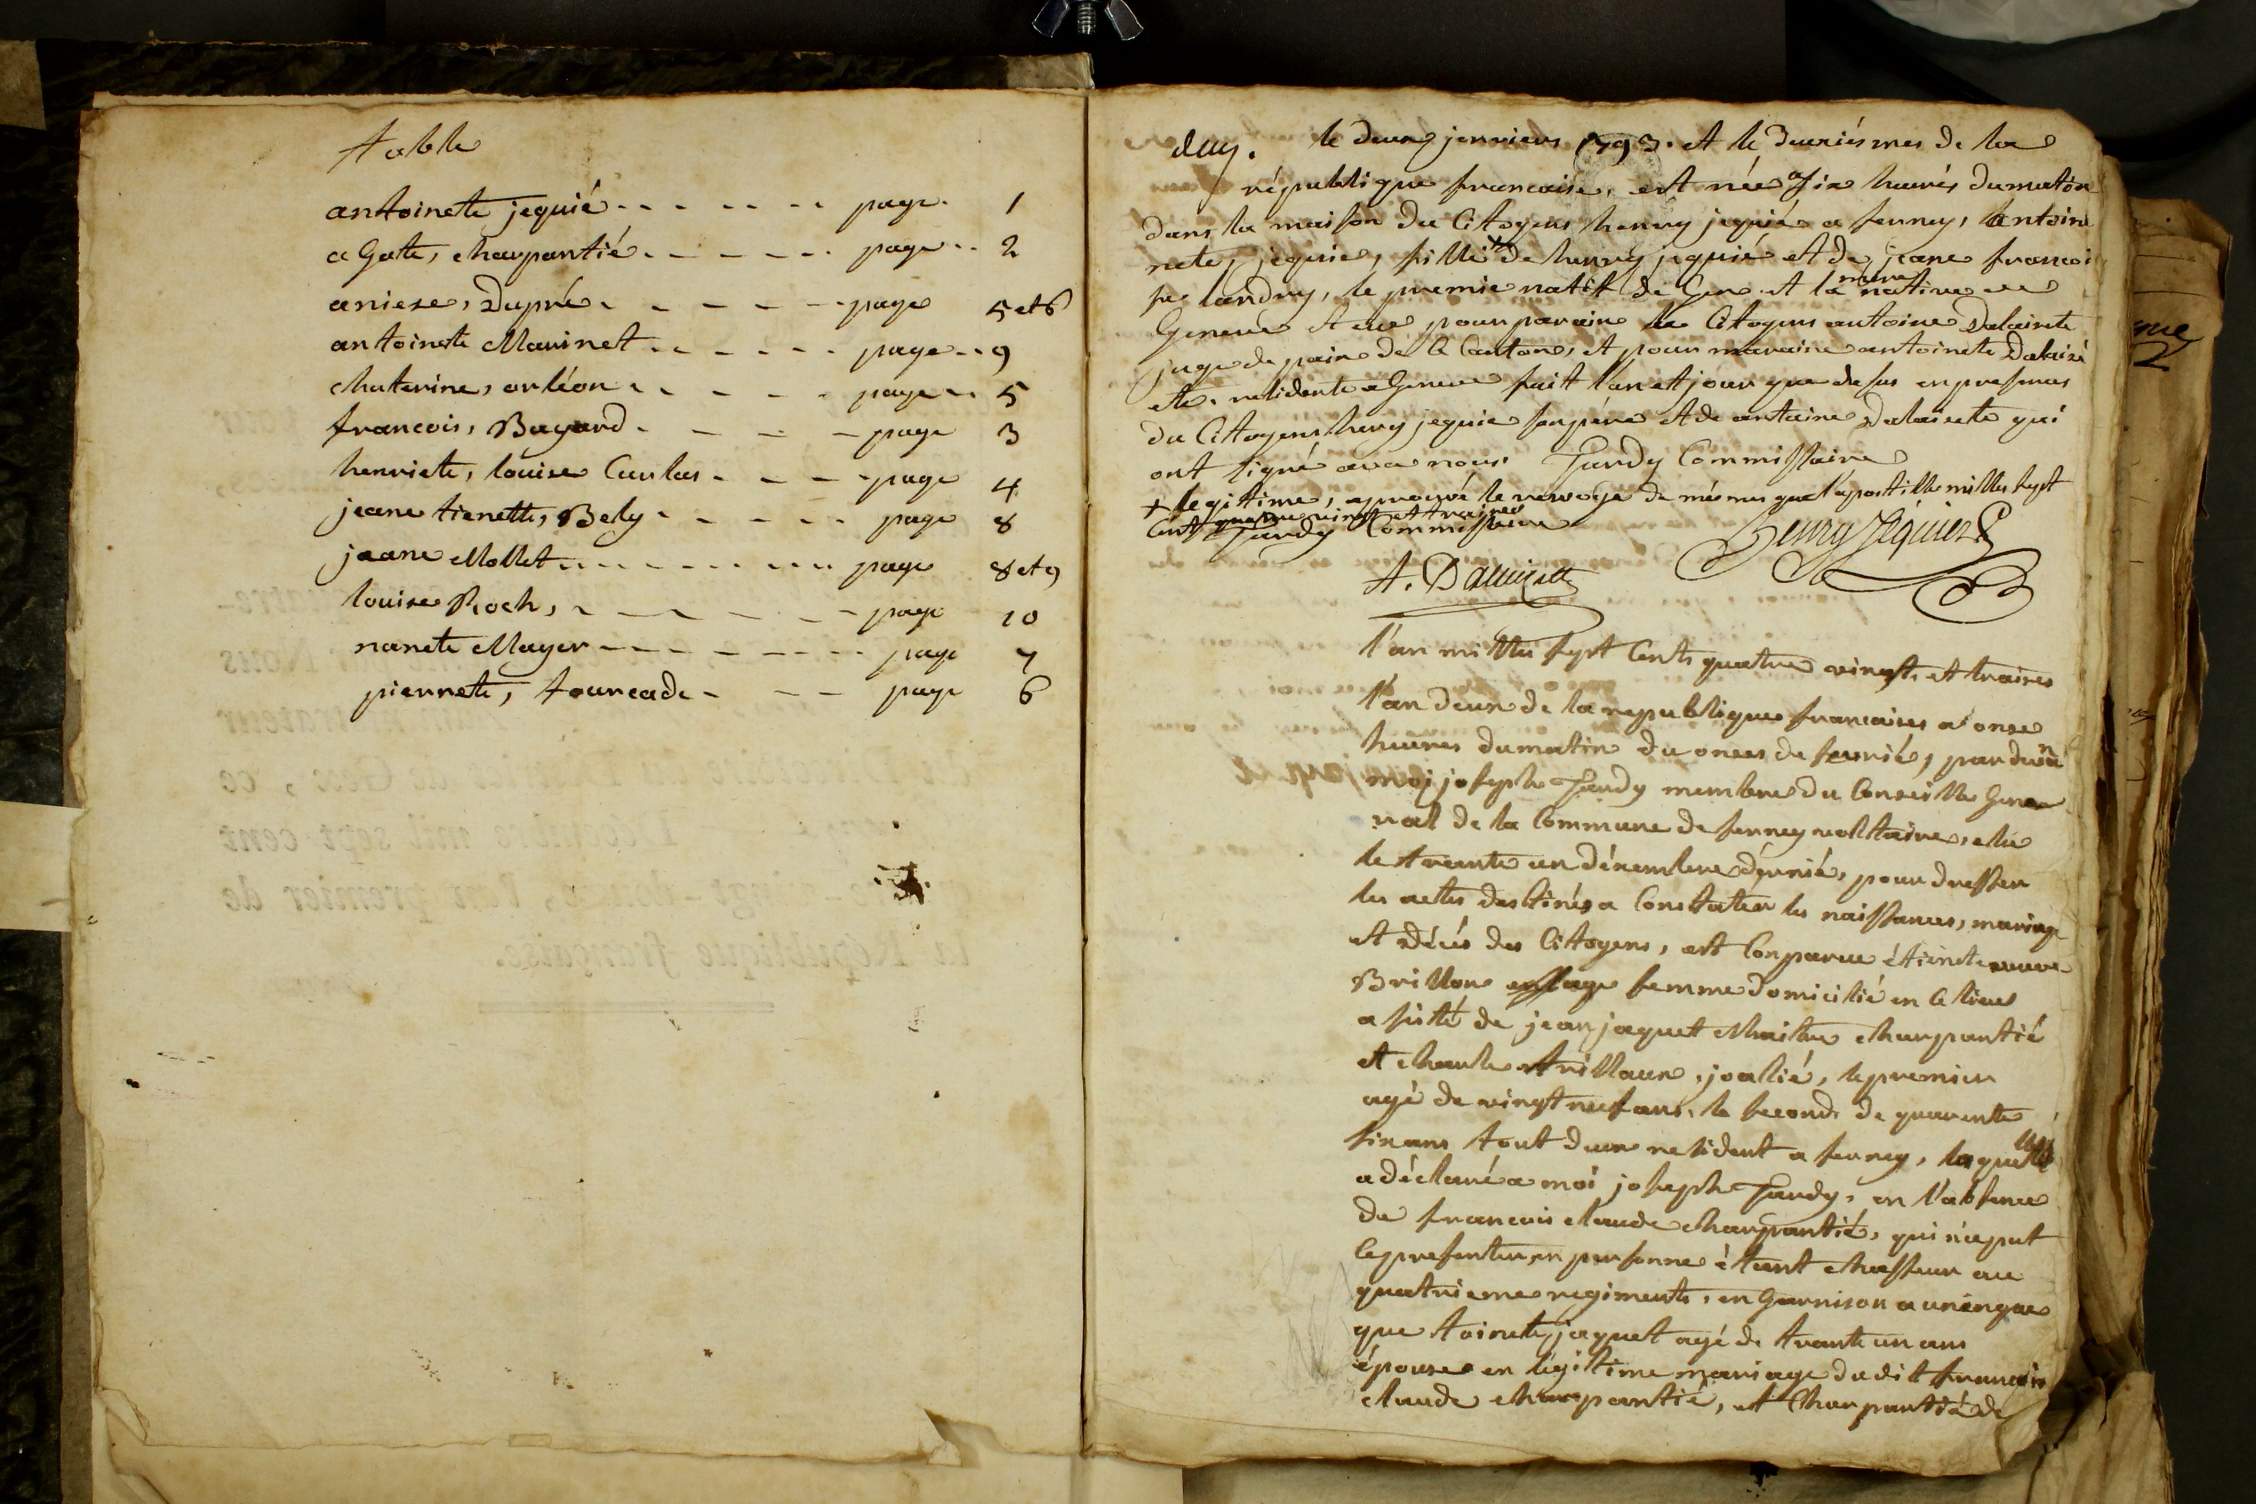 table
antoinete jequié page. 1
a Gate, charpantié page 2
aniese, Dupré page 5 et 6
antoinete Marinet page 9
chaterine, orléon page 5
francois, Bayard page 3
henriete, louise Carlas page 4
jeane tienette, Bely page 8
jeane Mollet page 8 et 9
louise Roch, page 10
nanete Mayer page 7
pierrete, tourcade page 6
duy. le deux jenviers 1793. et le deuxiésmes de la
république francaise, est née a six heures du matin
dans la maison du Citoyens henry jequié a ferney, antoin
nete, jequié, fille + de henry jequié et de jeane francoi
se landry, le premie natif de Gex et la mere native
Geneve et eue pour parain le Citoyens antoine Dalaisete
juge de paix de Ce Canton, et pour maraine antoinete Dalaisé
ete. residente a Geneve fait l'an et jour que desus en presences
du Citoyens henry jequie son père et de antoine Dalaisete qui
ont signé avec nous. Tardy Commissaire
+ legitime, aprouvé de mésmes que l'apostille milles sept
Cent quatre vingt et traizes
Tardy Commissaire
Henry Jéquier
A. Dallaizette
l'an milles sept Cents quatre vingt et traizes
l'an deux de la republiques francaises a onse
heures du matin du onees de jenvié, par devan
moi joseph Tardy membre du Conseille Gene
ral de la Commune de ferney volltaire, elu
le trante un désembre dérnié, pour dresser
les actes destinés a Constater les naissances, mariage
et décés des Citoyens, est Conparue étienete veuve
Brillon sage femme domicilié en Ce lieus
a sisté de jean jaquet Maitre charpantié
et charle trillaux, joalié, le premier
agé de vingt neuf ans, le second de quarente
six ans tout deux resident a ferney, laquelle
a déclaré a moi joseph Tardy, en l'absence
de francois claude charpantié, qui n'a put
Ce presenter en personne étant chasseur au
quatrieme regiments, en Garnison a
que toinete jaquet agé de trante un ans
épouse en légitime mariage dudit francois
claude charpantié, et Charpantié de